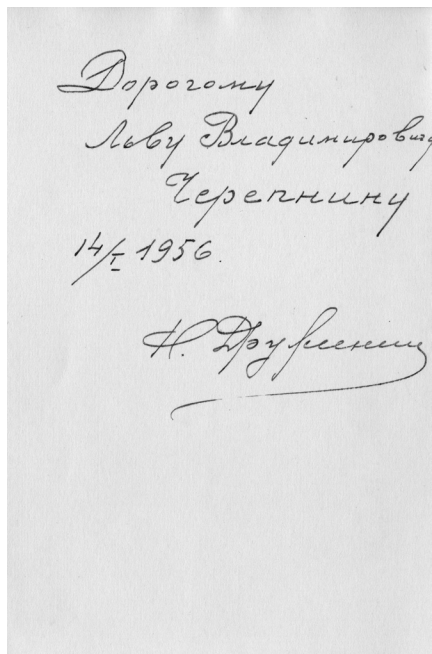 Дорогому
Льву Владимировичу
Черепнину
14/I 1956.
Н. Дружинин